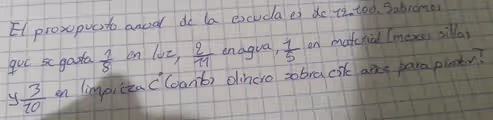 El proxupuesto anual de la escuela es de 12.100. Sabremos
que se gasta 1/5 en luz, 2/11 en agua, 1/5 en material (mexas sillas)
y 3/10 en limpieza ¿Cuanto dinero sobra este año para pintar?